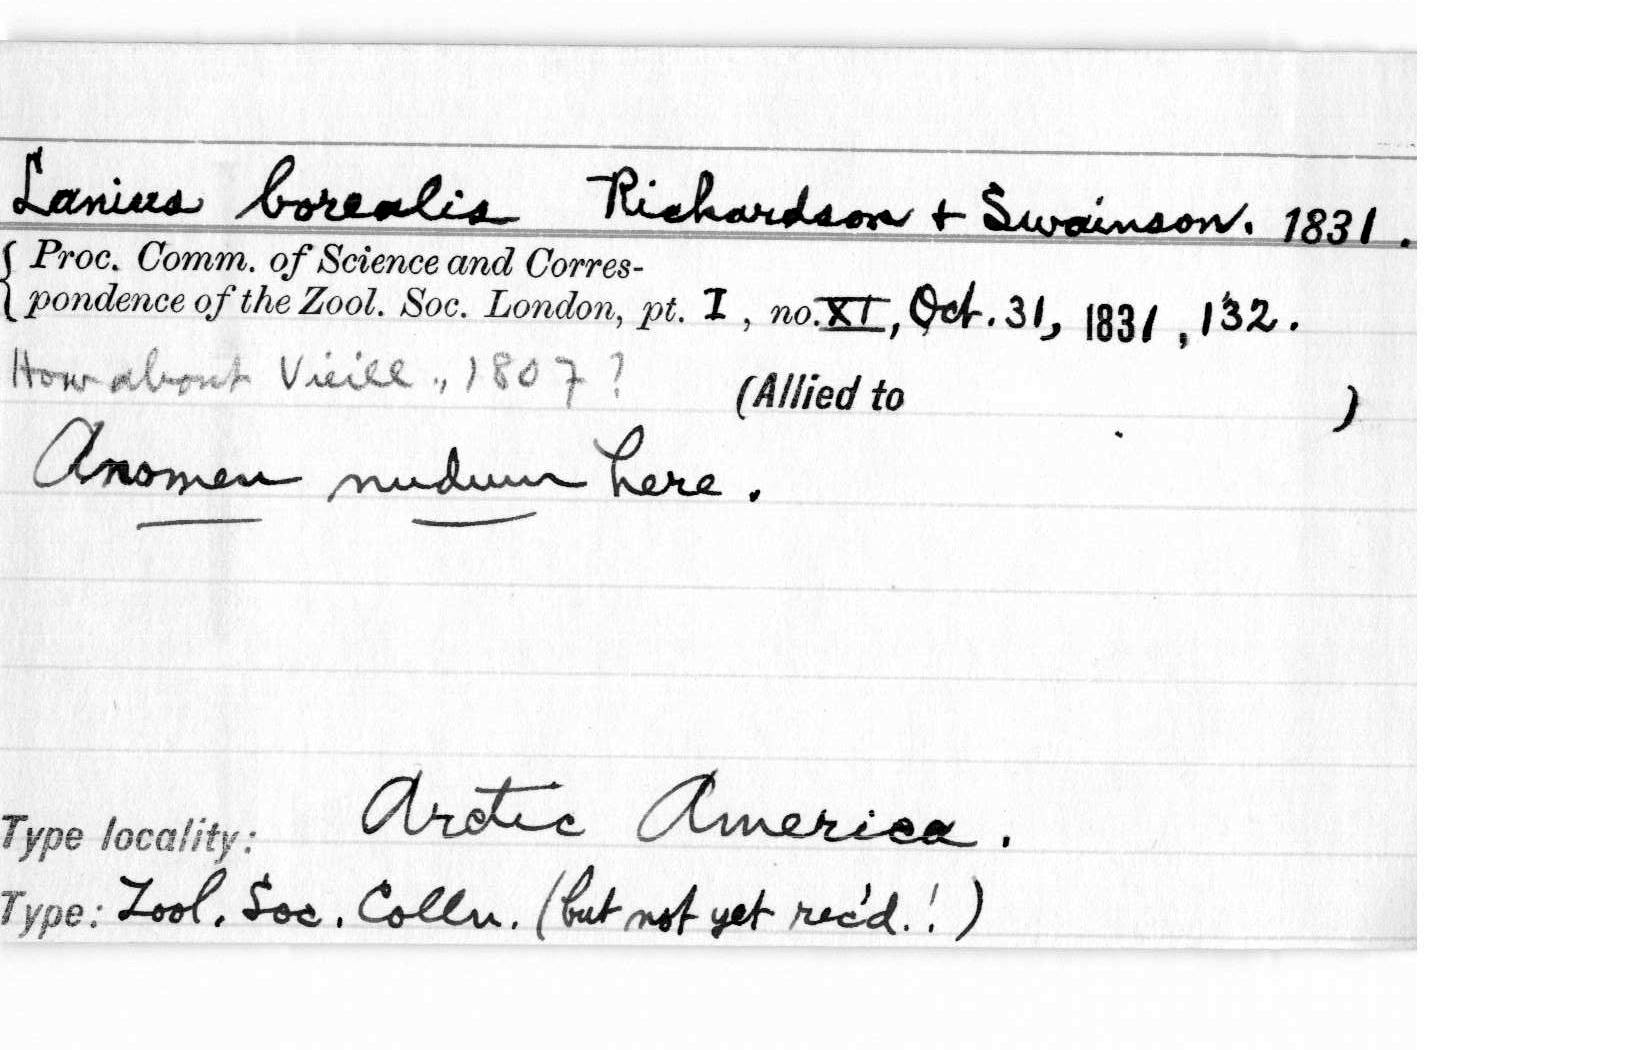 Lanius borealis Richardson + Swainson. 1831.
Proc. Comm. of Science and Corres-
pondence of the Zool. Soc. London, pt. I, no. XI, Oct. 31, 1831, 132.
How about Vieill., 1807?
(Allied to )
A nomen nudum here.
Type locality: Arctic America.
Type: Zool. Soc. Colln. (but not yet rec'd.!)